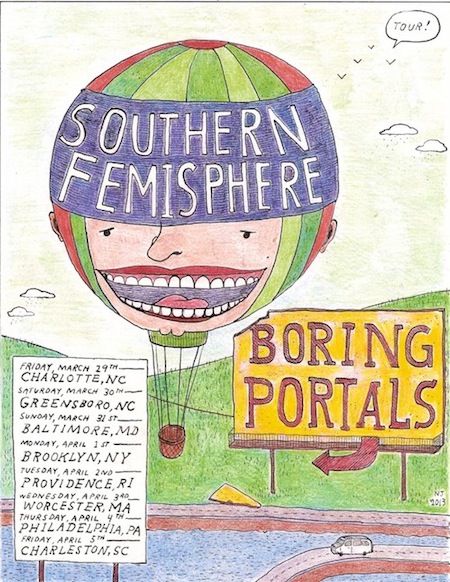 TOUR!
SOUTHERN
FEMISPHERE
BORING
PORTALS
FRIDAY, MARCH 29TH
CHARLOTTE, NC
SATURDAY, MARCH 30TH
GREENSBORO, NC
SUNDAY, MARCH 31ST
BALTIMORE, MD
MONDAY, APRIL 1ST
BROOKLYN, NY
TUESDAY, APRIL 2ND
PROVIDENCE, RI
WEDNESDAY, APRIL 3RD
WORCESTER, MA
THURSDAY, APRIL 4TH
PHILADELPHIA, PA
FRIDAY, APRIL 5TH
CHARLESTON, SC
NJ
2013